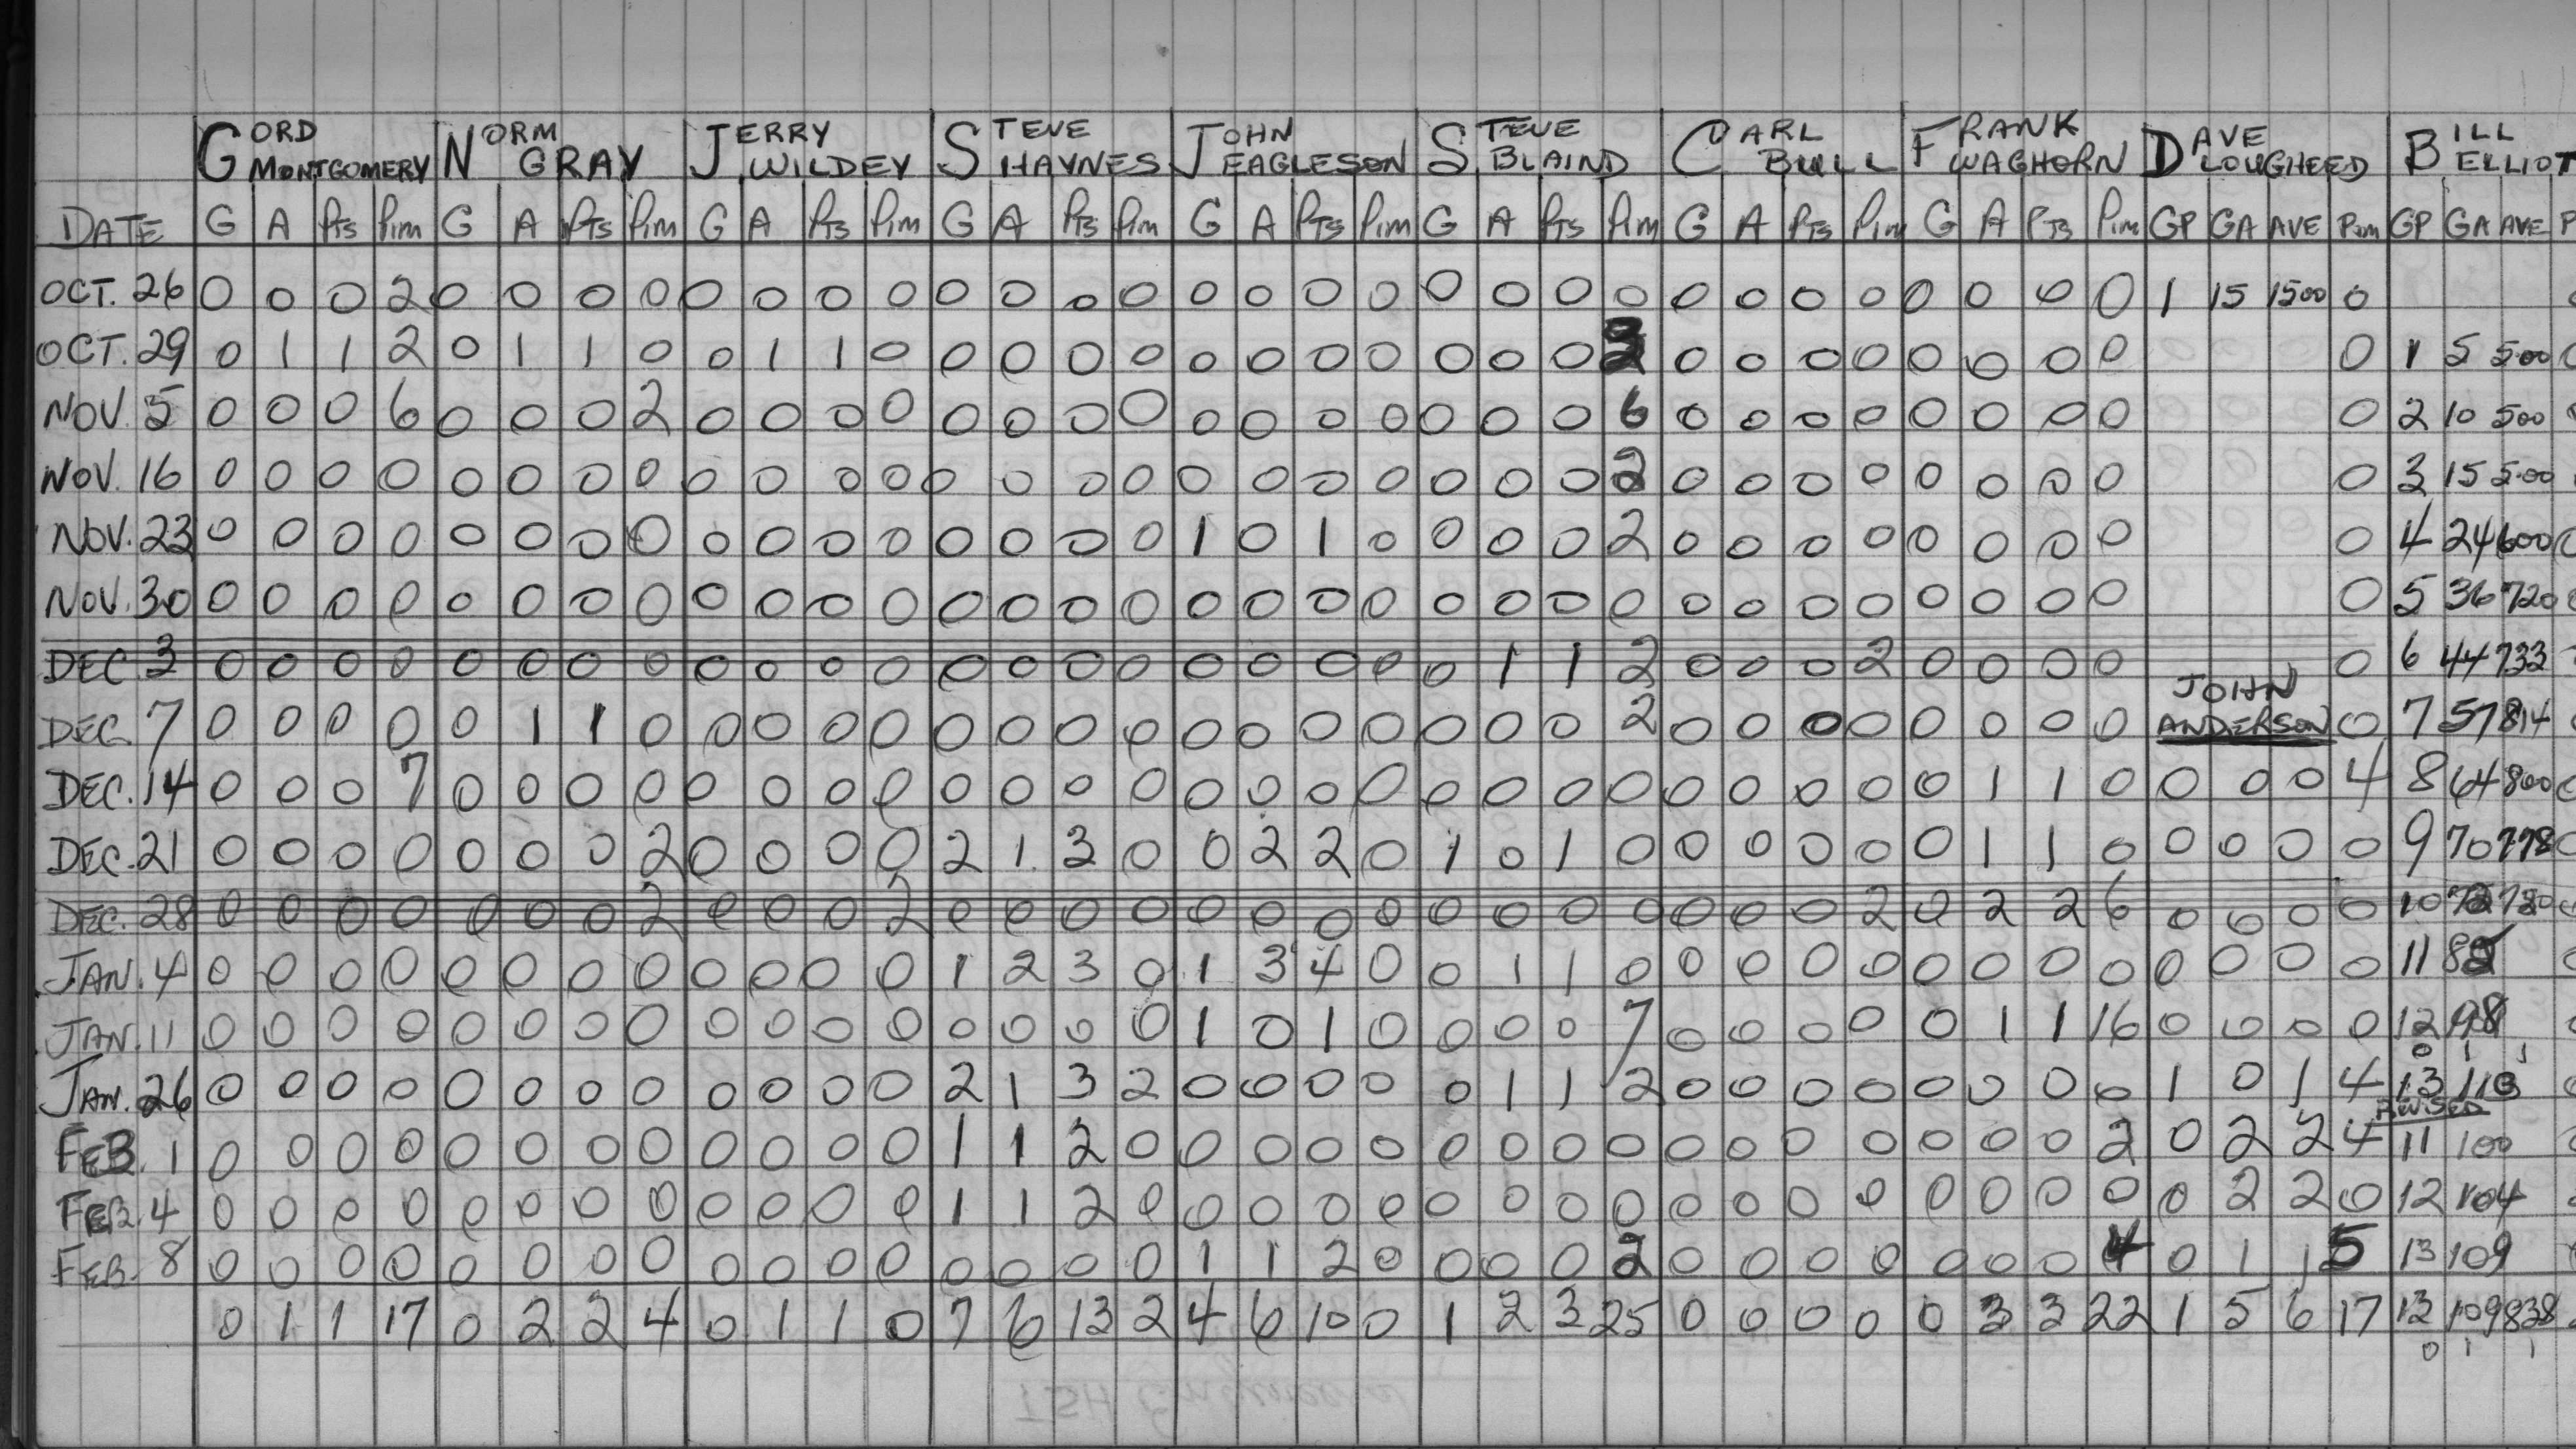 GORD MONTGOMERY NORM GRAY JERRY WILDEY STEVE HAYNES JOHN EAGLESON STEVE BLAIND CARL BULL FRANK WAGHORN DAVE LOUGHEED BILL ELLIOT
DATE G A Pts Pim G A Pts Pim G A Pts Pim G A Pts Pim G A PTS Pim G A Pts Pim G A Pts Pim G A PTS Pim GP GA AVE Pim GP GA AVE P
OCT. 26 0 0 0 2 0 0 0 0 0 0 0 0 0 0 0 0 0 0 0 0 0 0 0 0 0 0 0 0 0 0 0 0 1 15 1500 0
OCT. 29 0 1 1 2 0 1 1 0 0 1 1 0 0 0 0 0 0 0 0 0 0 0 0 0 0 0 0 0 0 0 0 0 1 5 5.00
NOV. 5 0 0 0 6 0 0 0 2 0 0 0 0 0 0 0 0 0 0 0 0 0 0 0 6 0 0 0 0 0 0 0 0 0 2 10 500
NOV. 16 0 0 0 0 0 0 0 0 0 0 0 0 0 0 0 0 0 0 0 0 0 0 0 2 0 0 0 0 0 0 0 0 0 3 15 5.00
NOV. 23 0 0 0 0 0 0 0 0 0 0 0 0 0 0 0 0 1 0 1 0 0 0 0 2 0 0 0 0 0 0 0 0 0 4 24 600
NOV. 30 0 0 0 0 0 0 0 0 0 0 0 0 0 0 0 0 0 0 0 0 0 0 0 0 0 0 0 0 0 0 0 0 0 5 36 720
DEC 3 0 0 0 0 0 0 0 0 0 0 0 0 0 0 0 0 0 0 0 0 0 1 1 2 0 0 0 2 0 0 0 0 0 6 44 733
JOHN ANDERSON
DEC. 7 0 0 0 0 0 1 1 0 0 0 0 0 0 0 0 0 0 0 0 0 0 0 0 2 0 0 0 0 0 0 0 0 0 7 57 814
DEC. 14 0 0 0 7 0 0 0 0 0 0 0 0 0 0 0 0 0 0 0 0 0 0 0 0 0 0 0 0 0 1 1 0 0 0 0 4 8 64 800
DEC. 21 0 0 0 0 0 0 0 2 0 0 0 0 2 1 3 0 0 2 2 0 1 0 1 0 0 0 0 0 0 1 1 0 0 0 0 0 9 70 778
DEC. 28 0 0 0 0 0 0 0 2 0 0 0 2 0 0 0 0 0 0 0 0 0 0 0 0 0 0 0 2 0 2 2 6 0 0 0 0 10
JAN. 4 0 0 0 0 0 0 0 0 0 0 0 0 1 2 3 0 1 3 4 0 0 1 1 0 0 0 0 0 0 0 0 0 0 0 0 0 11
JAN. 11 0 0 0 0 0 0 0 0 0 0 0 0 0 0 0 0 1 0 1 0 0 0 0 7 0 0 0 0 0 1 1 16 0 0 0 0 12 98
0 1 1
JAN. 26 0 0 0 0 0 0 0 0 0 0 0 0 2 1 3 2 0 0 0 0 0 1 1 2 0 0 0 0 0 0 0 0 1 0 1 4 13
REVISED
FEB. 1 0 0 0 0 0 0 0 0 0 0 0 0 1 1 2 0 0 0 0 0 0 0 0 0 0 0 0 0 0 0 0 2 0 2 2 4 11 100
FEB. 4 0 0 0 0 0 0 0 0 0 0 0 0 1 1 2 0 0 0 0 0 0 0 0 0 0 0 0 0 0 0 0 0 0 2 2 0 12 104
FEB. 8 0 0 0 0 0 0 0 0 0 0 0 0 0 0 0 0 1 1 2 0 0 0 0 2 0 0 0 0 0 0 0 4 0 1 1 5 13 109
0 1 1 17 0 2 2 4 0 1 1 0 7 6 13 2 4 6 10 0 1 2 3 25 0 0 0 0 0 3 3 22 1 5 6 17 13 109 838
0 1 1